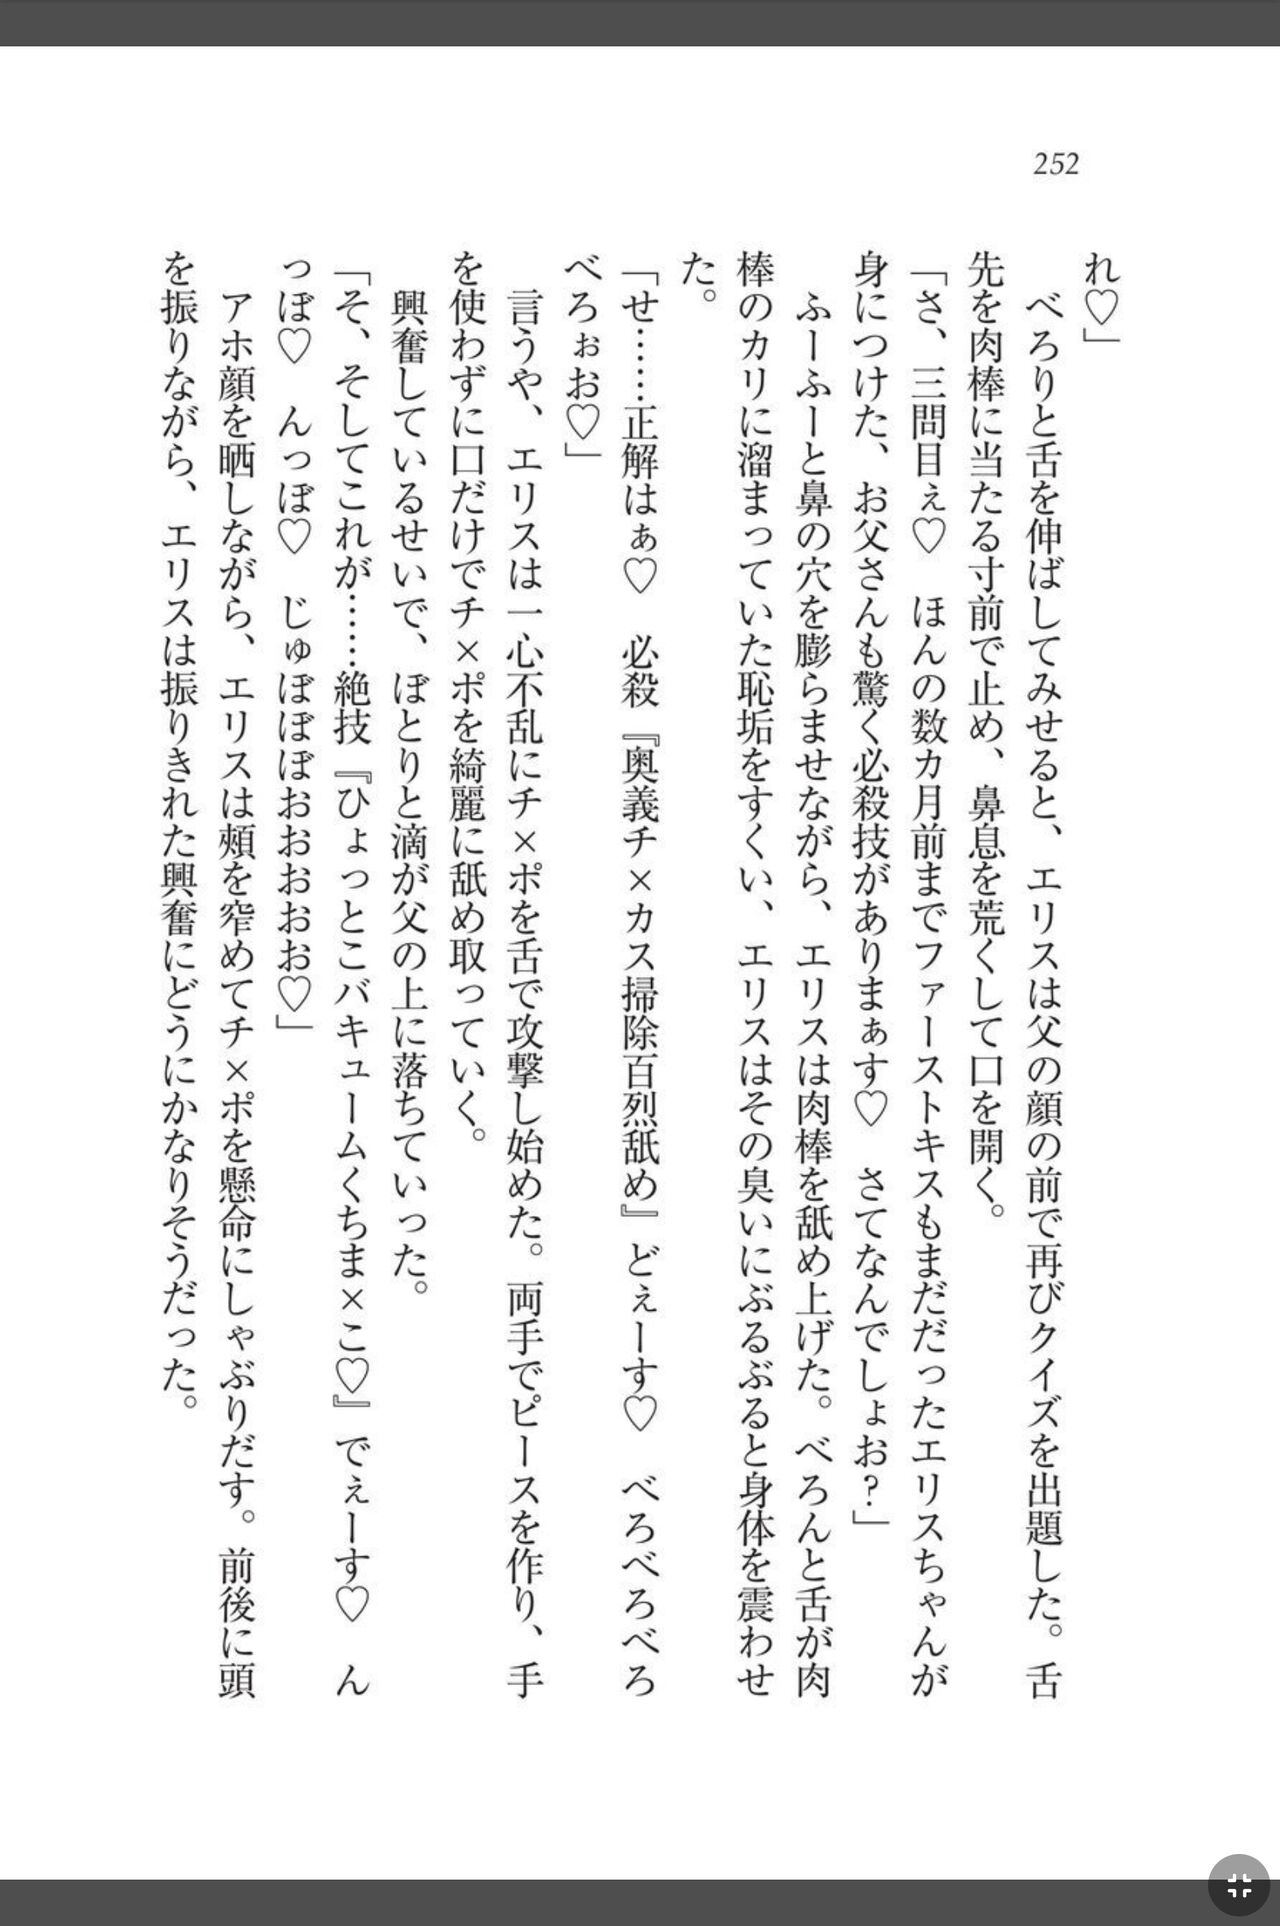 252
れ♡」
　べろりと舌を伸ばしてみせると、エリスは父の顔の前で再びクイズを出題した。舌
先を肉棒に当たる寸前で止め、鼻息を荒くして口を開く。
「さ、三問目ぇ♡　ほんの数カ月前までファーストキスもまだだったエリスちゃんが
身につけた、お父さんも驚く必殺技がありまぁす♡　さてなんでしょお?」
　ふーふーと鼻の穴を膨らませながら、エリスは肉棒を舐め上げた。べろんと舌が肉
棒のカリに溜まっていた恥垢をすくい、エリスはその臭いにぶるぶると身体を震わせ
た。
「せ……正解はぁ♡　必殺『奥義チ×カス掃除百烈舐め』どぇーす♡　べろべろべろ
べろぉお♡」
　言うや、エリスは一心不乱にチ×ポを舌で攻撃し始めた。両手でピースを作り、手
を使わずに口だけでチ×ポを綺麗に舐め取っていく。
　興奮しているせいで、ぼとりと滴が父の上に落ちていった。
「そ、そしてこれが……絶技『ひょっとこバキュームくちま×こ♡』でぇーす♡　ん
っぼ♡　んっぼ♡　じゅぼぼぼおおおおお♡」
　アホ顔を晒しながら、エリスは頰を窄めてチ×ポを懸命にしゃぶりだす。前後に頭
を振りながら、エリスは振りきれた興奮にどうにかなりそうだった。